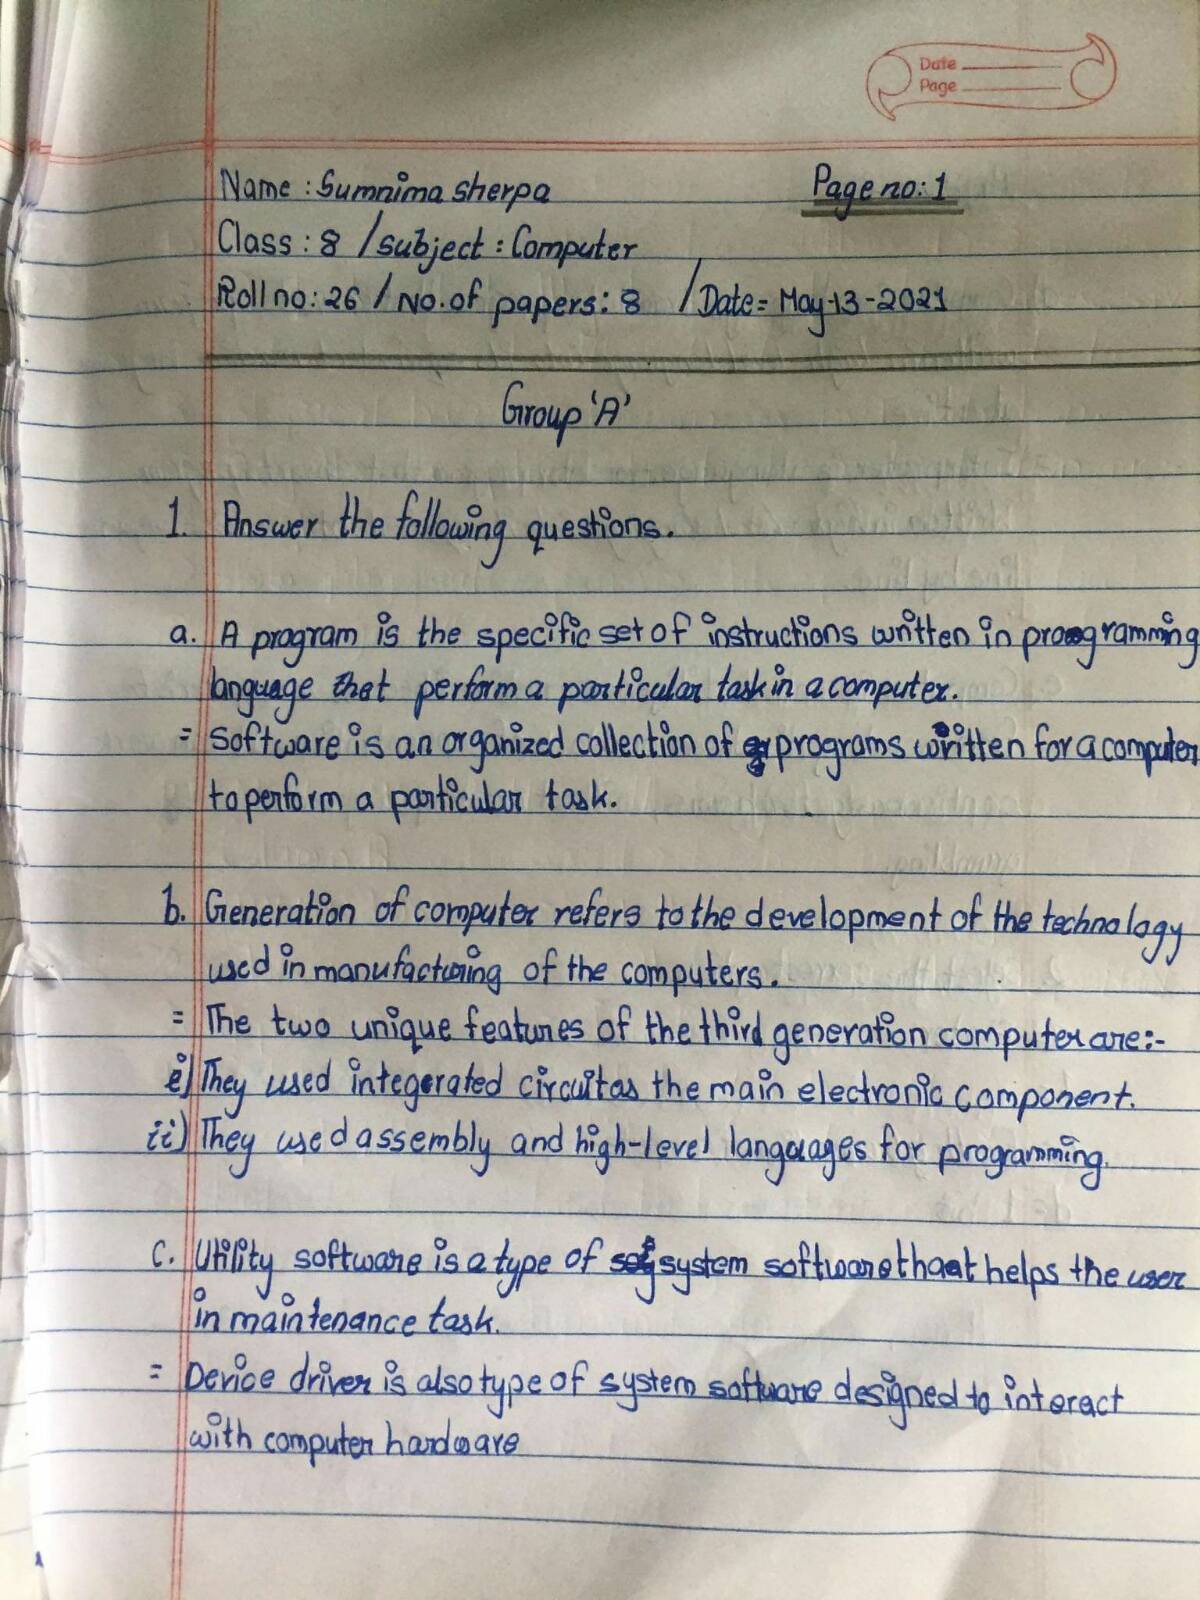 Date
Page
Name : Sumnima sherpa Page no: 1
Class : 8 / subject : Computer
Roll no: 26 / No. of papers: 8 / Date = May-13-2021
Group 'A'
1. Answer the following questions.
a. A program is the specific set of instructions written in programming
language that perform a particular task in a computer.
= Software is an organized collection of programs written for a computer
to perform a particular task.
b. Generation of computer refers to the development of the technology
used in manufacturing of the computers.
= The two unique features of the third generation computer are:-
i) They used integerated circuit as the main electronic component.
ii) They used assembly and high-level languages for programming.
c. Utility software is a type of system software that helps the user
in maintenance task.
= Device driver is also type of system software designed to interact
with computer hardware